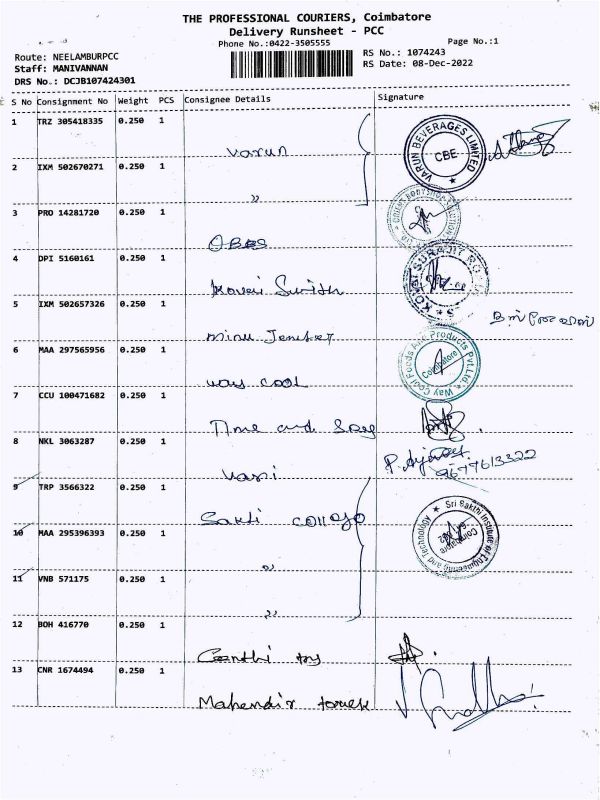 THE PROFESSIONAL COURIERS, Coimbatore
Delivery Runsheet - PCC
Phone No.:0422-3505555
Page No.:1
Route: NEELAMBURPCC
RS No.: 1074243
Staff: MANIVANNAN
RS Date: 08-Dec-2022
DRS No.: DCJB107424301
S No Consignment No Weight PCS Consignee Details Signature
1 TRZ 305418335 0.250 1 Varun
VARUN BEVERAGES LIMITED CBE
2 IXM 502670271 0.250 1 "
3 PRO 14281720 0.250 1
4 DPI 5160161 0.250 1 Kovai
KOVAI
5 IXM 502657326 0.250 1 minu
6 MAA 297565956 0.250 1 way cool
Way Cool Foods And Products Pvt.Ltd. Coimbatore
7 CCU 100471682 0.250 1 Time and
8 NKL 3063287 0.250 1 Vasi
9677613322
9 TRP 3566322 0.250 1 Sakti
Sri Sakthi Institute of Engineering and Technology Coimbatore
10 MAA 295396393 0.250 1 "
11 VNB 571175 0.250 1 "
12 BOH 416770 0.250 1
13 CNR 1674494 0.250 1